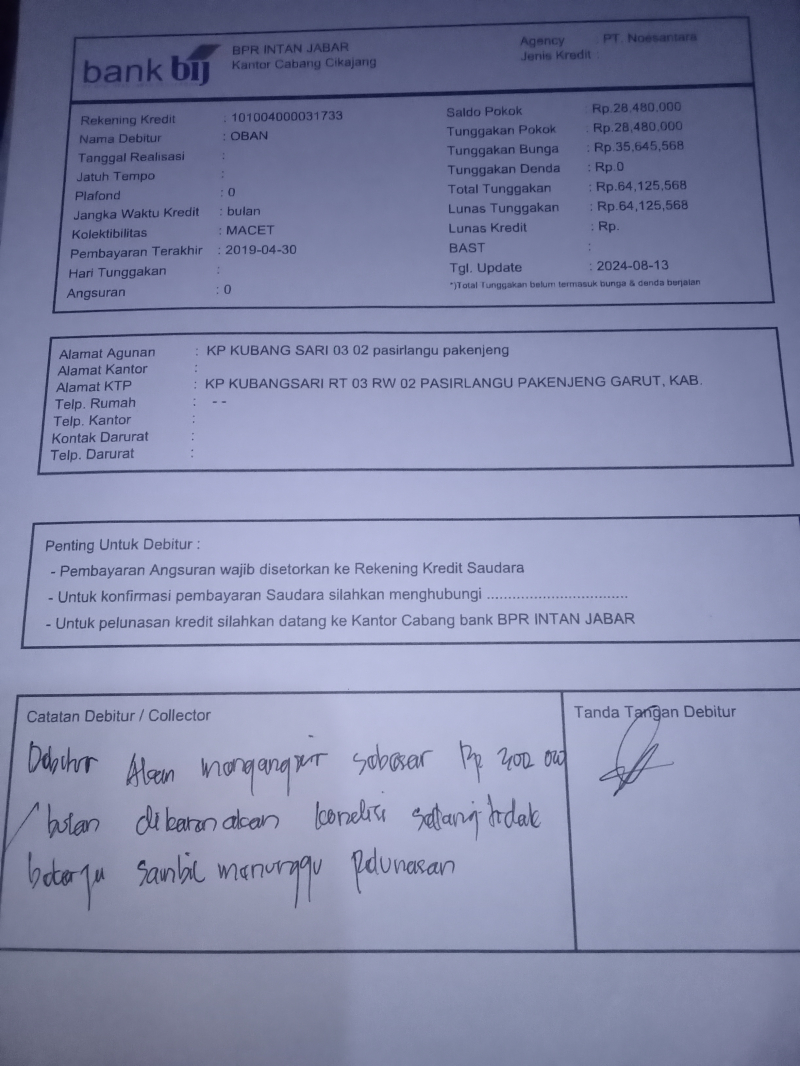 bank bij
BPR INTAN JABAR
Kantor Cabang Cikajang
Agency : PT. Noesantara
Jenis Kredit :
Rekening Kredit : 101004000031733
Nama Debitur : OBAN
Tanggal Realisasi :
Jatuh Tempo :
Plafond : 0
Jangka Waktu Kredit : bulan
Kolektibilitas : MACET
Pembayaran Terakhir : 2019-04-30
Hari Tunggakan :
Angsuran : 0
Saldo Pokok : Rp.28,480,000
Tunggakan Pokok : Rp.28,480,000
Tunggakan Bunga : Rp.35,645,568
Tunggakan Denda : Rp.0
Total Tunggakan : Rp.64,125,568
Lunas Tunggakan : Rp.64,125,568
Lunas Kredit : Rp.
BAST :
Tgl. Update : 2024-08-13
*)Total Tunggakan belum termasuk bunga & denda berjalan
Alamat Agunan : KP KUBANG SARI 03 02 pasirlangu pakenjeng
Alamat Kantor :
Alamat KTP : KP KUBANGSARI RT 03 RW 02 PASIRLANGU PAKENJENG GARUT, KAB.
Telp. Rumah : - -
Telp. Kantor :
Kontak Darurat :
Telp. Darurat :
Penting Untuk Debitur :
- Pembayaran Angsuran wajib disetorkan ke Rekening Kredit Saudara
- Untuk konfirmasi pembayaran Saudara silahkan menghubungi .................................
- Untuk pelunasan kredit silahkan datang ke Kantor Cabang bank BPR INTAN JABAR
Catatan Debitur / Collector
Debitur Akan mengangsur sebesar Rp
/ bulan dikarenakan kondisi sedang tidak
bekerja sambil menunggu pelunasan
Tanda Tangan Debitur